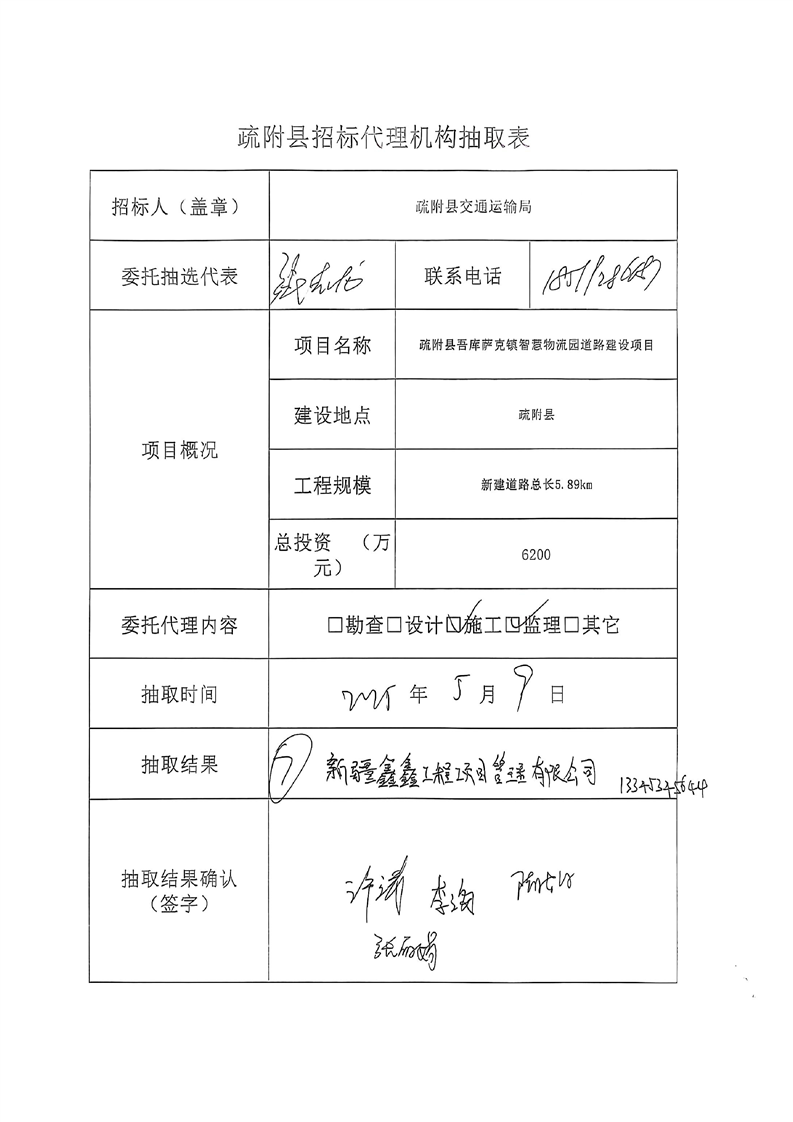 疏附县招标代理机构抽取表
招标人（盖章） 疏附县交通运输局
委托抽选代表 联系电话
项目概况
项目名称 疏附县吾库萨克镇智慧物流园道路建设项目
建设地点 疏附县
工程规模 新建道路总长5.89km
总投资 （万
元） 6200
委托代理内容 □勘查□设计☑施工☑监理□其它
抽取时间 2025年5月9日
抽取结果 7 新疆鑫鑫工程项目管理有限公司
抽取结果确认
（签字）
许 李
张丽娟